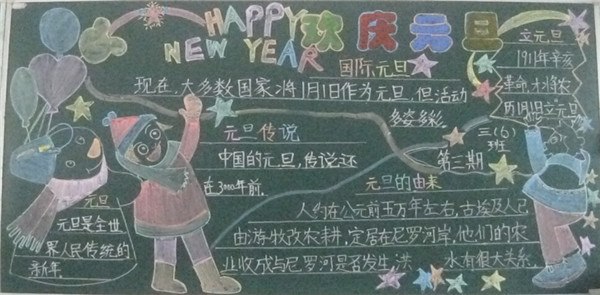 HAPPY
NEW YEAR
欢庆元旦
国际元旦
现在,大多数国家将1月1日作为元旦,但活动
多姿多彩.
立元旦
1911年辛亥
革命,才将农
历1月1日立元旦
三(6)
班
第三期
元旦传说
中国的元旦,传说还
在3000年前.
元旦
元旦是全世
界人民传统的
新年
元旦的由来
人约在公元前五万年左右,古埃及人已
由游牧改农耕,定居在尼罗河岸,他们的农
业收成与尼罗河是否发生洪
水有很大关系.